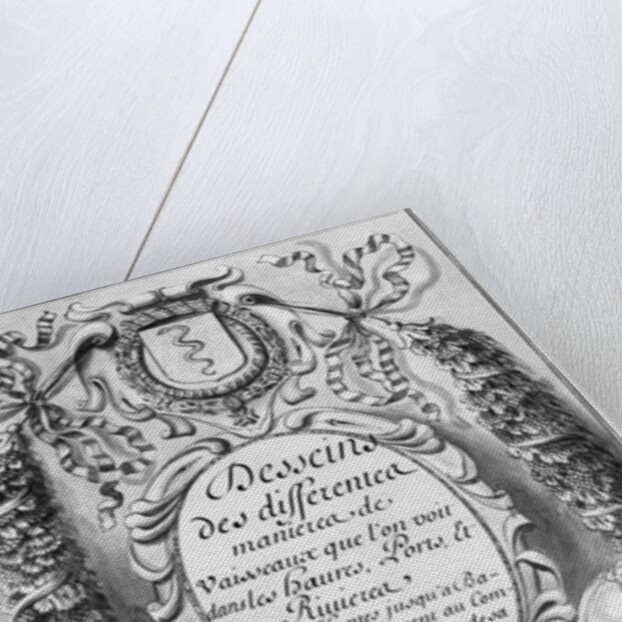 Desseins
des differentes
manieres de
Vaisseaux que l'on voit
dans les Haures, Ports, Et
Rivieres,
jusqu'a Ba-
au Com